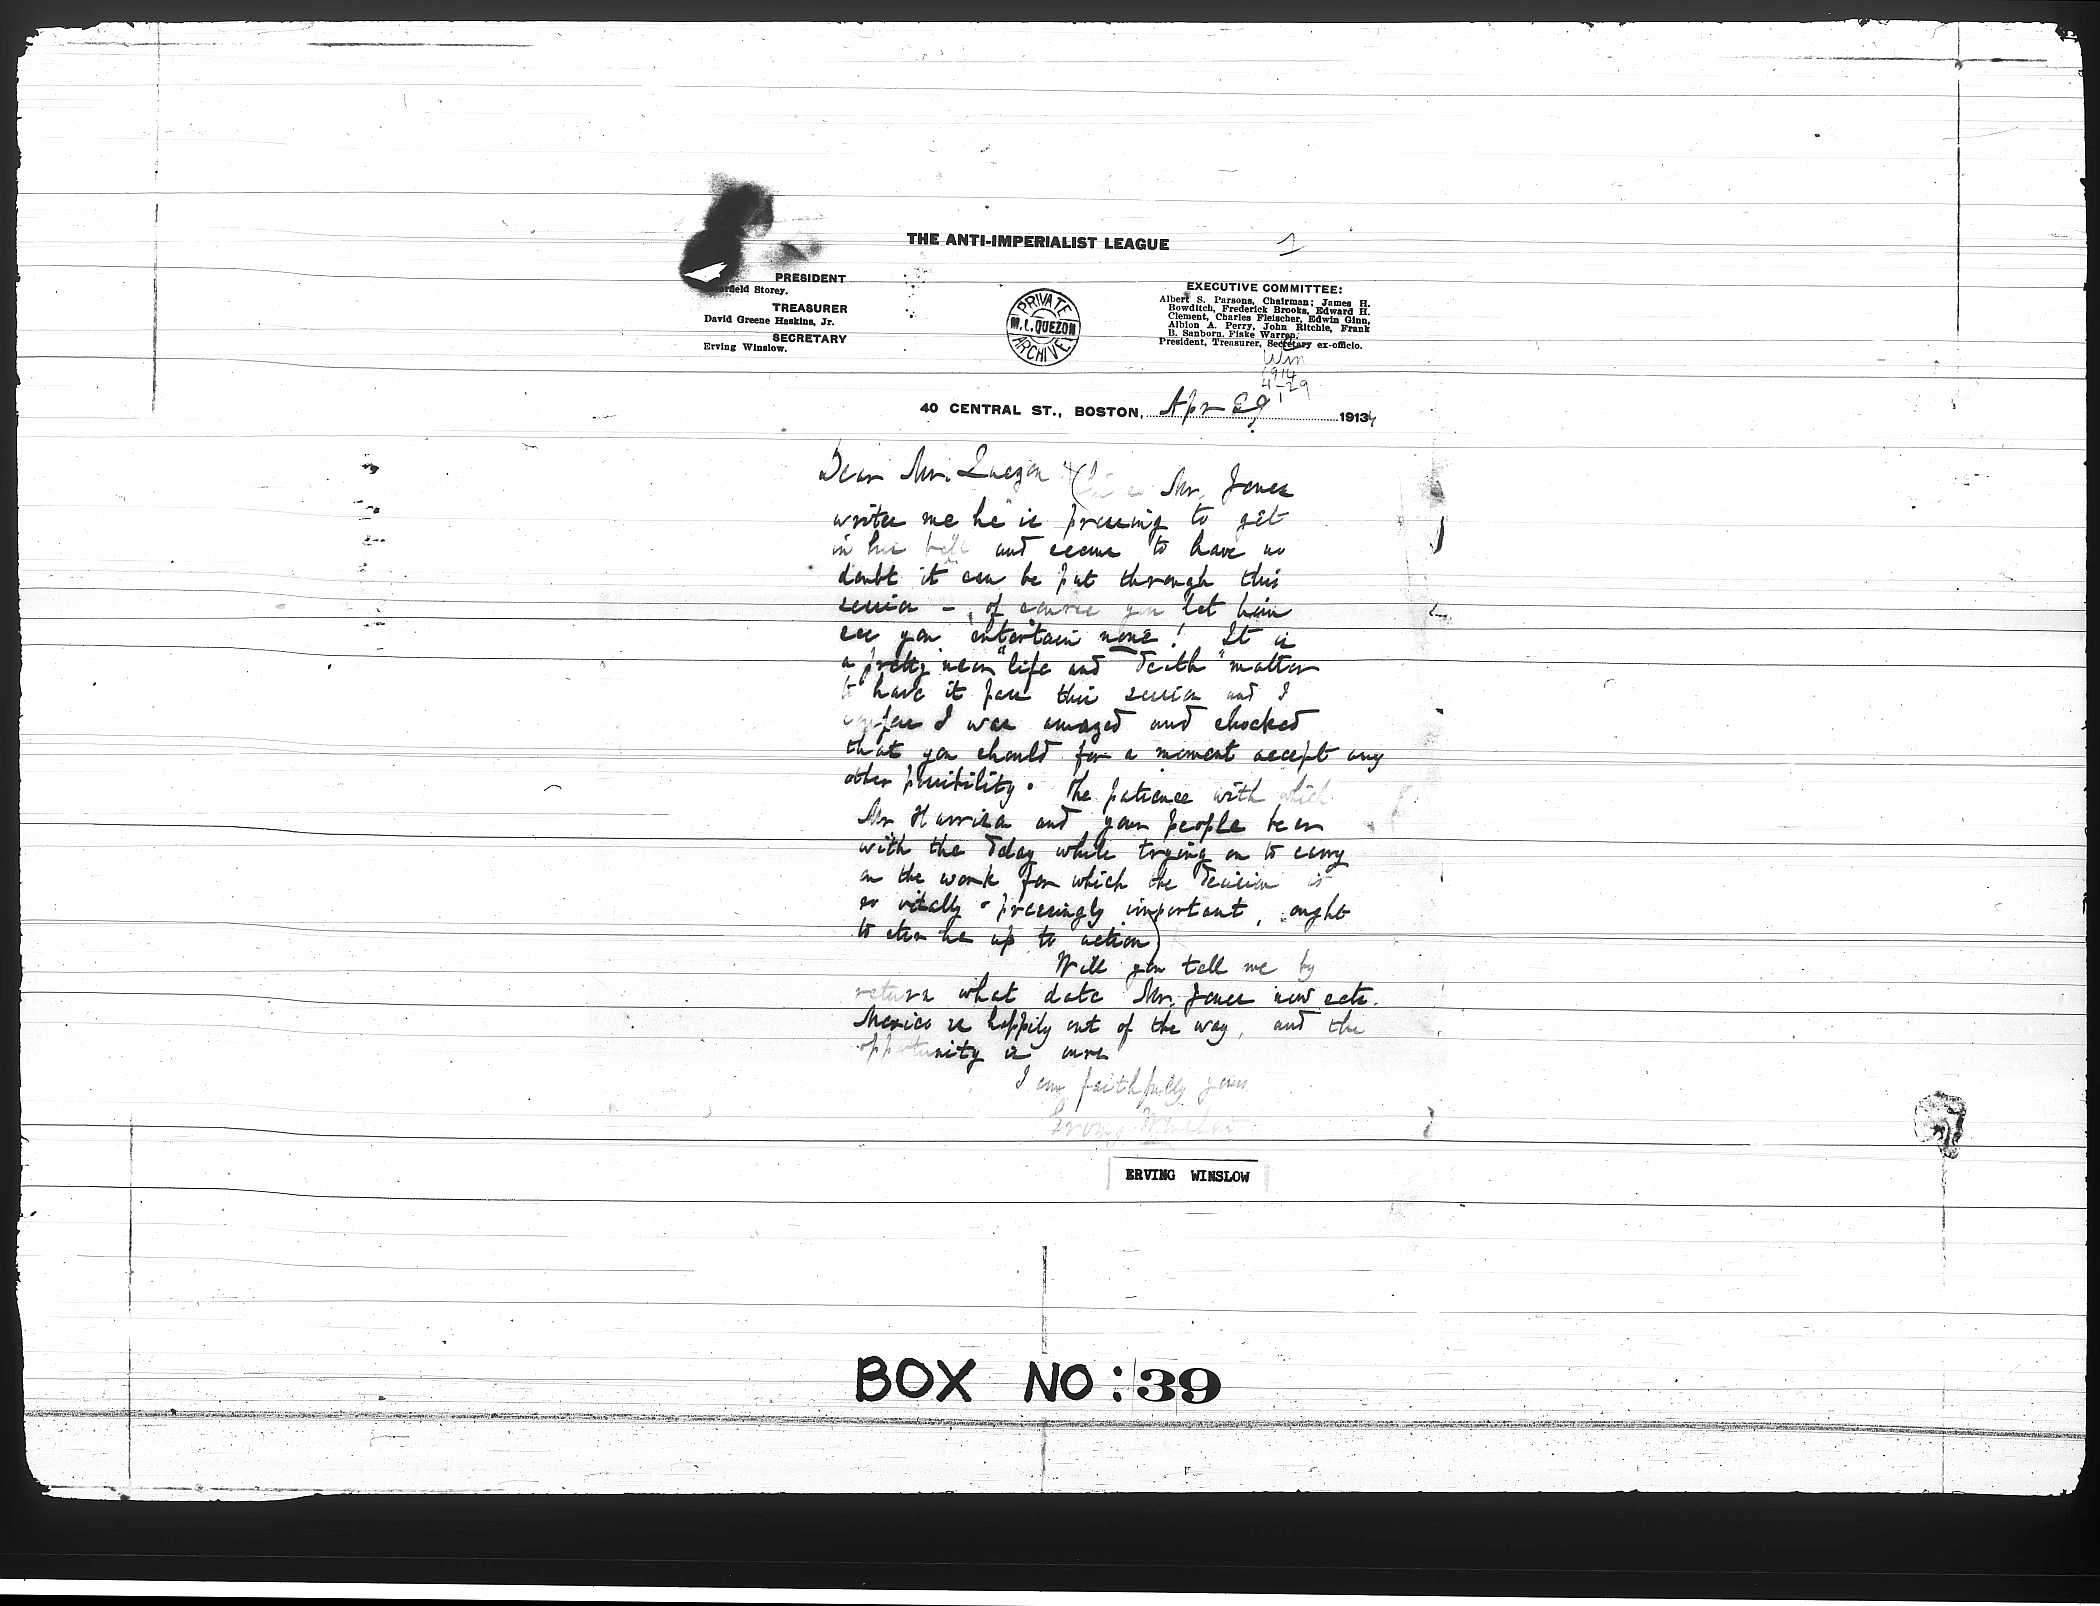 THE ANTI-IMPERIALIST LEAGUE
1
PRESIDENT
Storey.
TREASURER
David Greene Haskins, Jr.
SECRETARY
Erving Winslow.
PRIVATE
M.L. QUEZON
ARCHIVE
EXECUTIVE COMMITTEE:
Albert S. Parsons, Chairman; James H.
Bowditch, Frederick Brooks, Edward H.
Clement, Charles Fleischer, Edwin Ginn,
Albion A. Perry, John Ritchie, Frank
B. Sanborn, Fiske Warren,
President, Treasurer, Secretary ex-officio.
Win
1914
4-29
40 CENTRAL ST., BOSTON, Apr 29 1914
Dear Mr. Quezon Mr. Jones
writes me he is pressing to get
in his bill and seems to have no
doubt it can be put through this
session – of course you let him
see you entertain none! It is
a pretty near "life and death" matter
to have it pass this session and I
confess I was amazed and shocked
that you should for a moment accept any
other possibility. The patience with which
Mr Harrison and your people bear
with the delay while trying on to carry
on the work for which the decision is
so vitally + pressingly important, ought
to up to action)
Will you tell me by
return what date Mr. Jones now sets.
Mexico is happily out of the way, and the
opportunity is ours
I am faithfully yours
Erving Winslow
ERVING WINSLOW
BOX NO: 39